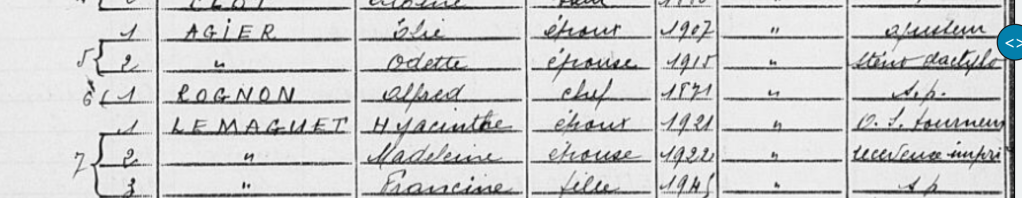 1 AGIER Élie époux 1907 " ajusteur
5 2 " Odette épouse 1915 " sténo dactylo
6 1 ROGNON Alfred chef 1871 " s.p.
1 LE MAGUET Hyacinthe époux 1921 " O.S. tourneur
7 2 " Madeleine épouse 1922 " receveuse impri
3 " Francine fille 1945 " s p